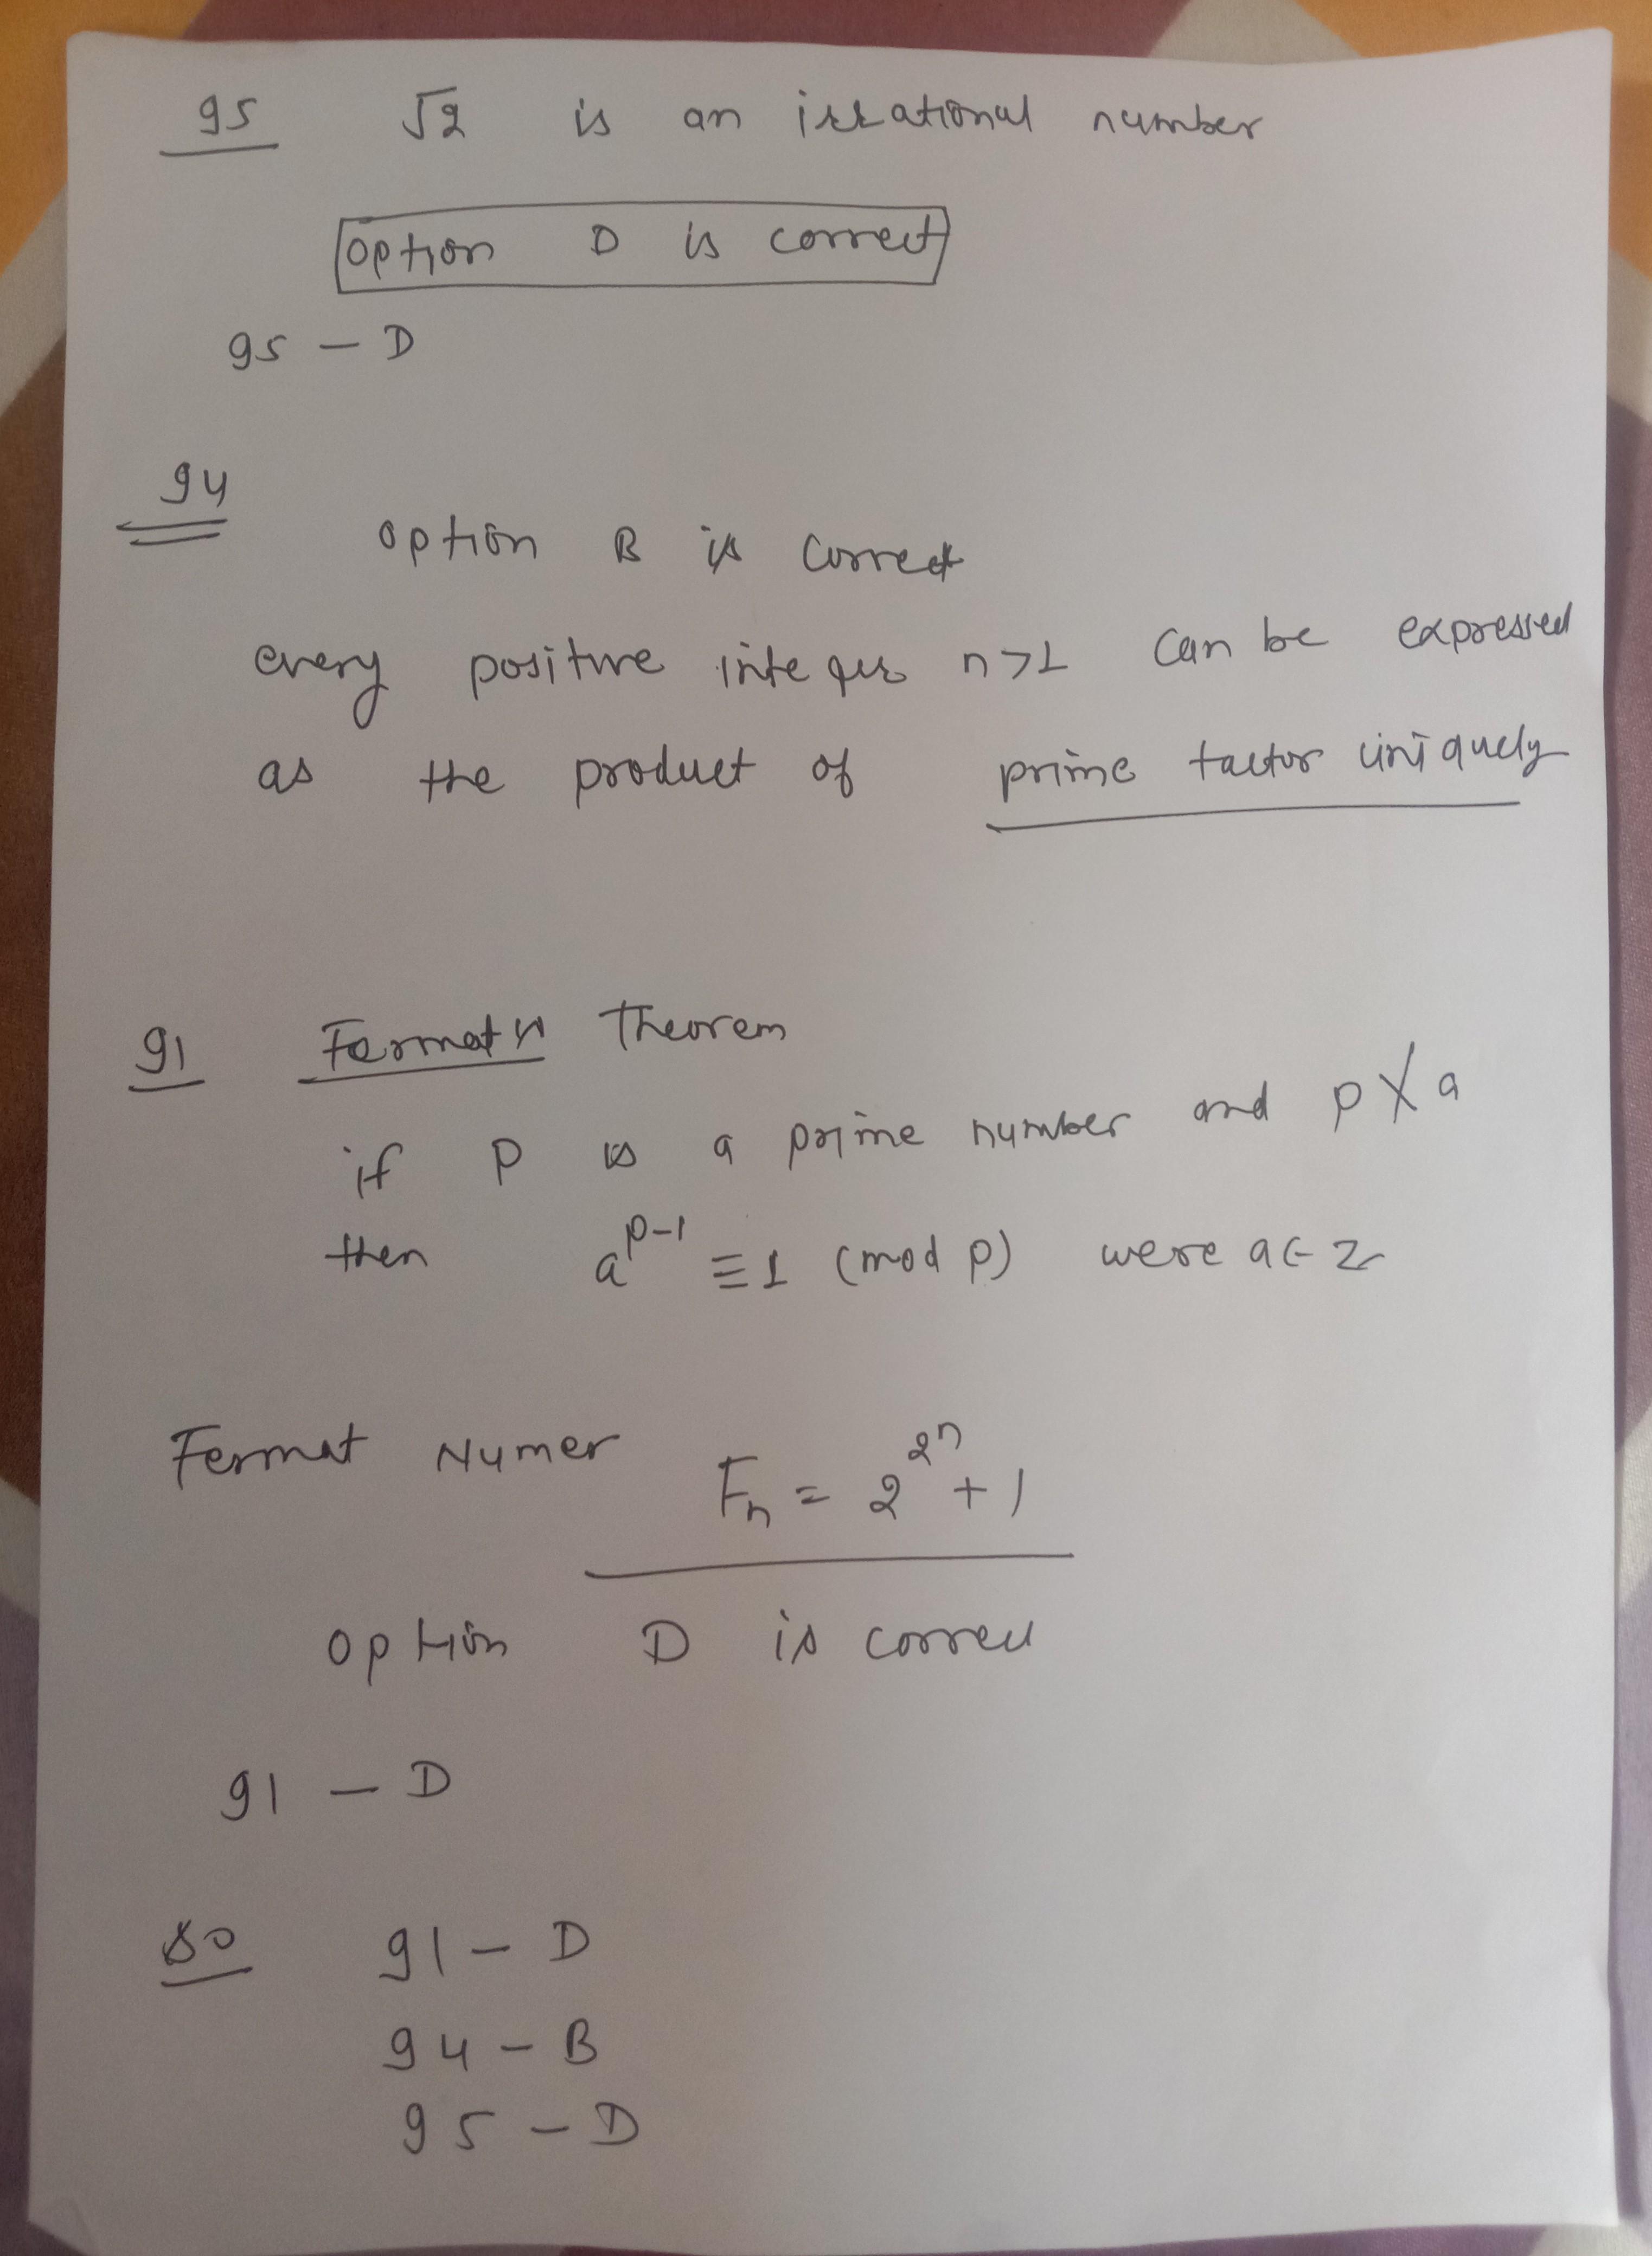 95 √2 is an irrational number
option D is correct
95 – D
94
option B is correct
every positive integer n>1 can be expressed
as the product of prime factor uniquely
91 Fermat's Theorem
if P is a prime number and p∤a
then a^(p-1) ≡ 1 (mod p) were a ∈ Z
Fermat Numer F_n = 2^(2^n) + 1
option D is correct
91 – D
So 91 – D
94 – B
95 – D